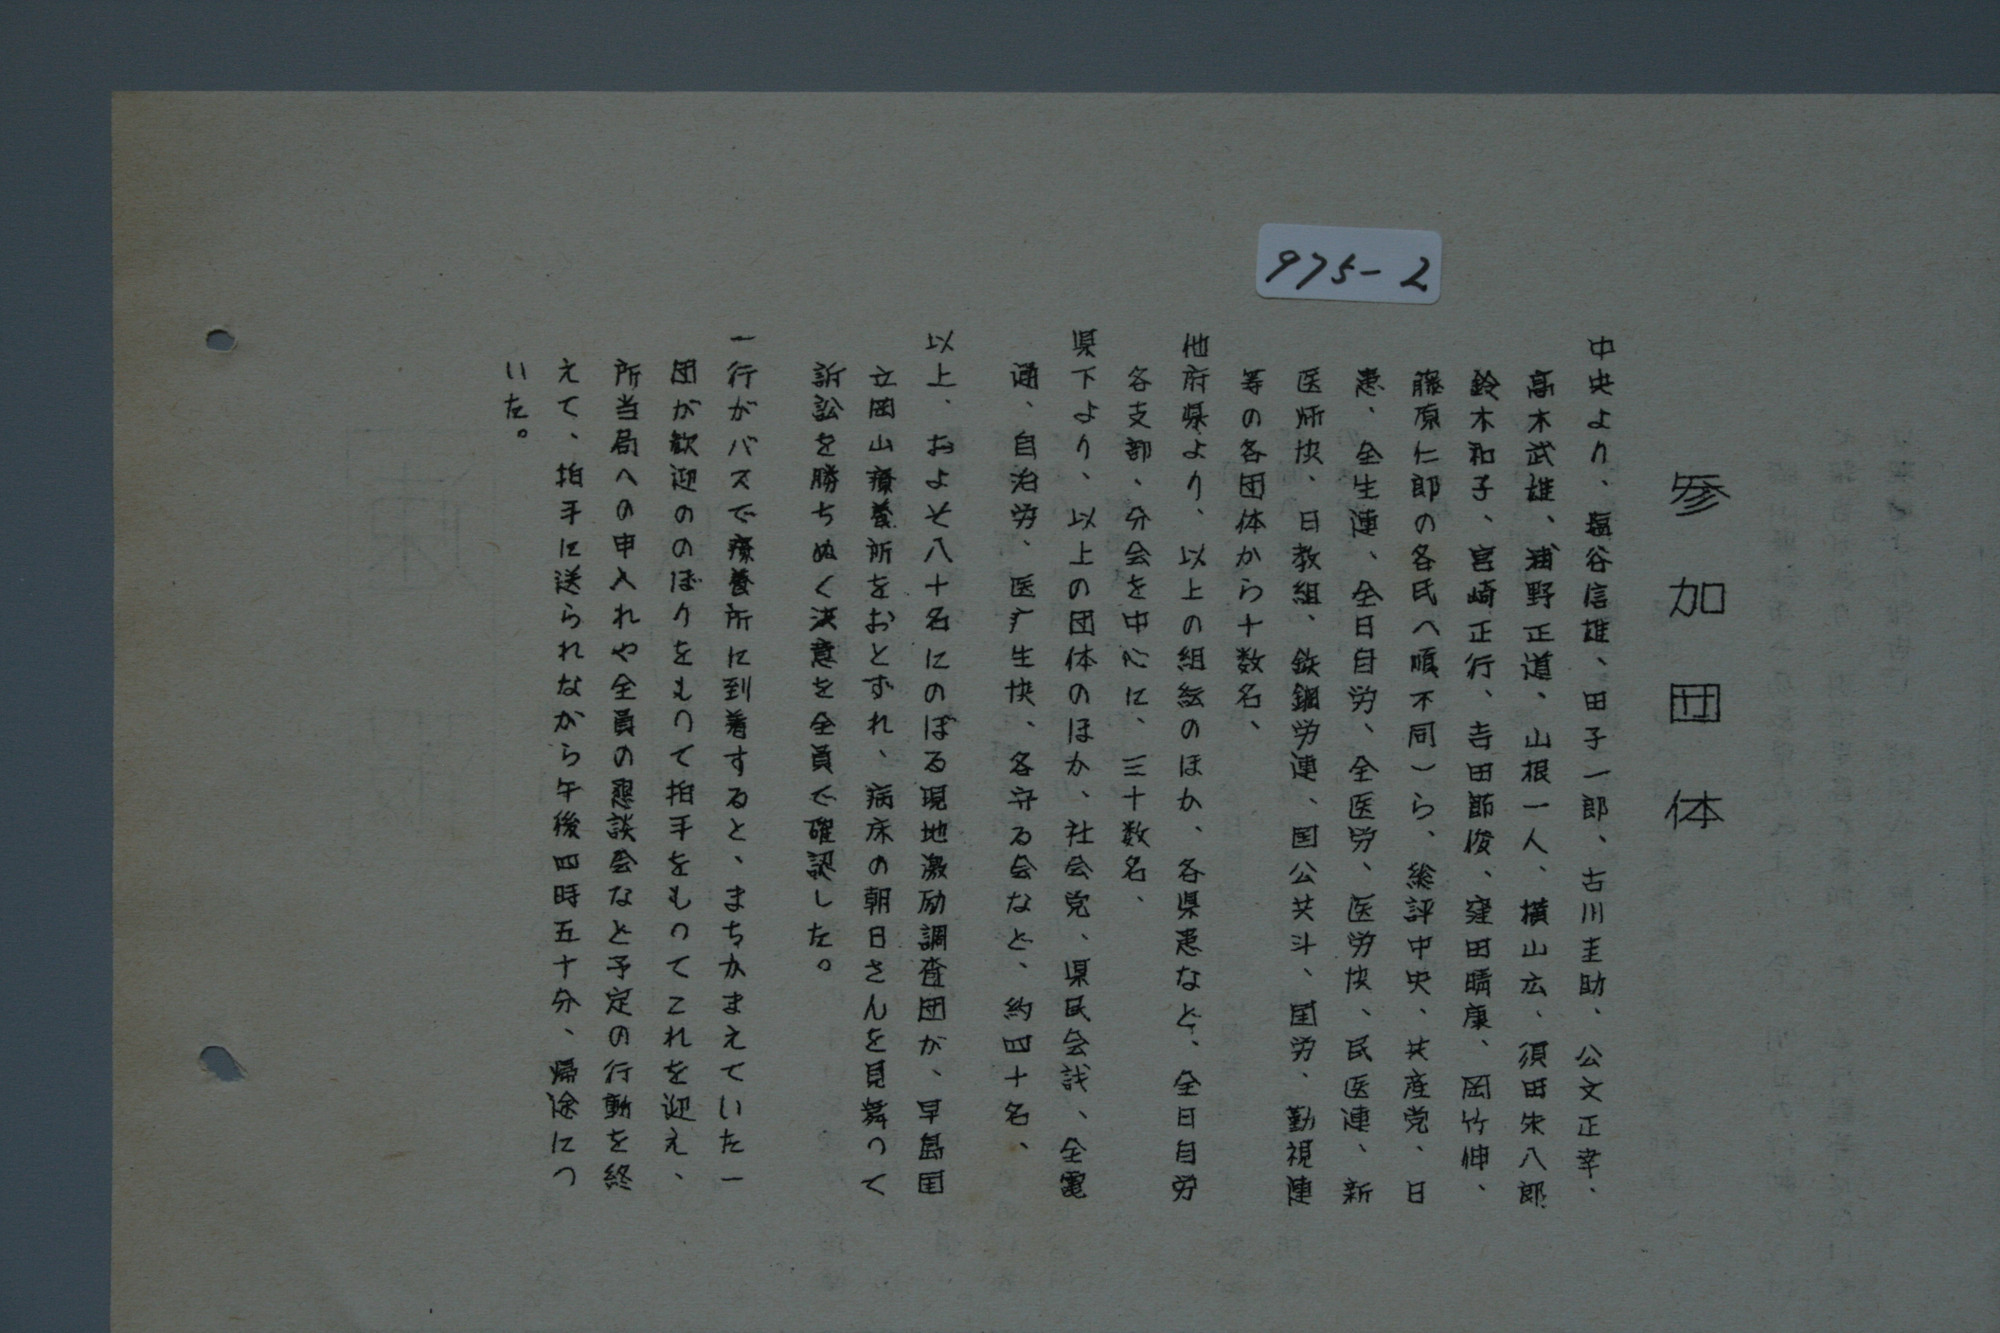 975-2
参加団体
中央より、塩谷信雄、田子一郎、古川圭助、公文正幸、
高木武雄、浦野正道、山根一人、横山広、須田朱八郎
鈴木和子、宮崎正行、吉田節俊、窪田晴康、岡竹伸、
藤原仁郎の各氏へ順不同)ら、総評中央、共産党、日
患、全生連、全日自労、全医労、医労快、民医連、新
医师快、日教組、鉄鋼労連、国公共斗、国労、勤視連
等の各団体から十数名、
他府県より、以上の組紜のほか、各県患など、全日自労
各支部、分会を中心に、三十数名、
県下より、以上の団体のほか、社会党、県民会議、全電
通、自治労、医疒生快、各守る会など、約四十名、
以上、およそ八十名にのぼる現地激励調査団が、早島国
立岡山療養所をおとずれ、病床の朝日さんを見舞って
訴訟を勝ちぬく決意を全員で確認した。
一行がバスで療養所に到着すると、まちかまえていた一
団が歓迎ののぼりをもって拍手をもってこれを迎え、
所当局への申入れや全員の懇談会など予定の行動を終
えて、拍手に送られながら午後四時五十分、帰途につ
いた。